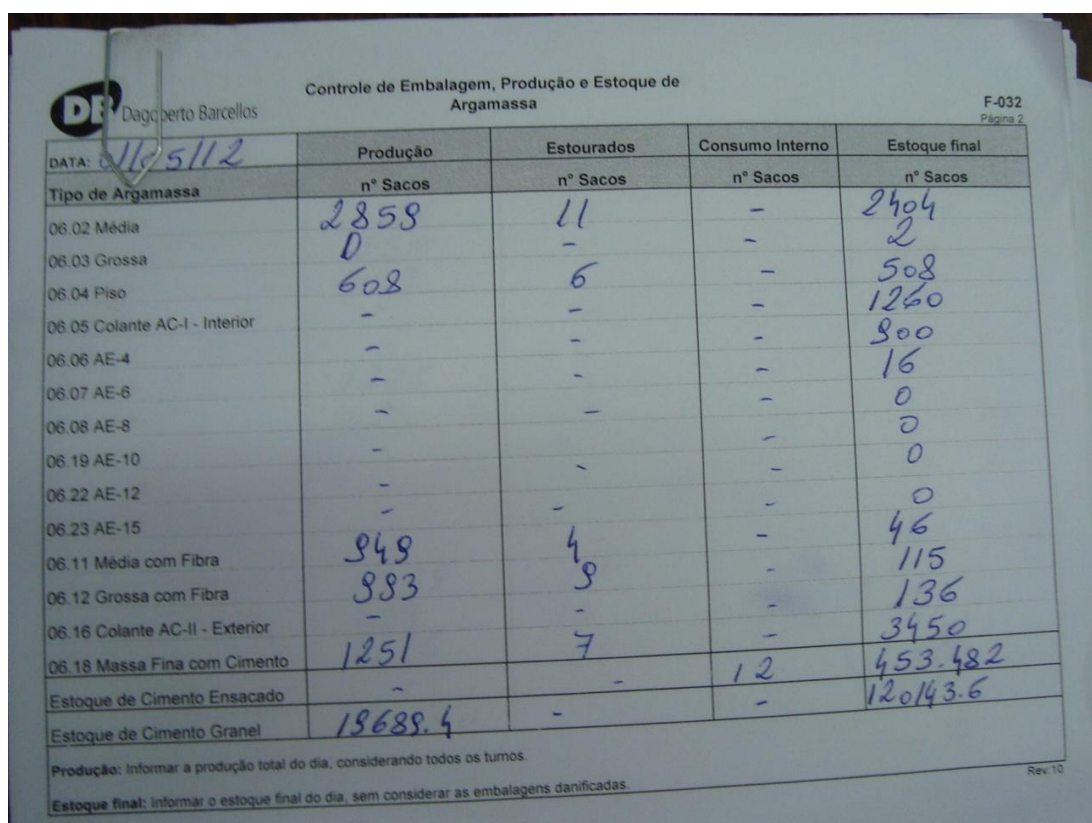 DB Dagoberto Barcellos
Controle de Embalagem, Produção e Estoque de
Argamassa
F-032
Página 2
DATA: 01/05/12 Produção Estourados Consumo Interno Estoque final
Tipo de Argamassa n° Sacos n° Sacos n° Sacos n° Sacos
06.02 Média 2859 11 - 2404
06.03 Grossa 0 - - 2
06.04 Piso 608 6 - 508
06.05 Colante AC-I - Interior - - - 1260
06.06 AE-4 - - - 900
06.07 AE-6 - - - 16
06.08 AE-8 - - - 0
06.19 AE-10 - - 0
06.22 AE-12 - - - 0
06.23 AE-15 - - - 0
06.11 Média com Fibra 949 4 - 46
06.12 Grossa com Fibra 993 9 - 115
06.16 Colante AC-II - Exterior - - - 136
06.18 Massa Fina com Cimento 1251 7 - 3450
Estoque de Cimento Ensacado - - 12 453.482
Estoque de Cimento Granel 19689.4 - - 120143.6
Produção: Informar a produção total do dia, considerando todos os turnos.
Estoque final: Informar o estoque final do dia, sem considerar as embalagens danificadas.
Rev:10